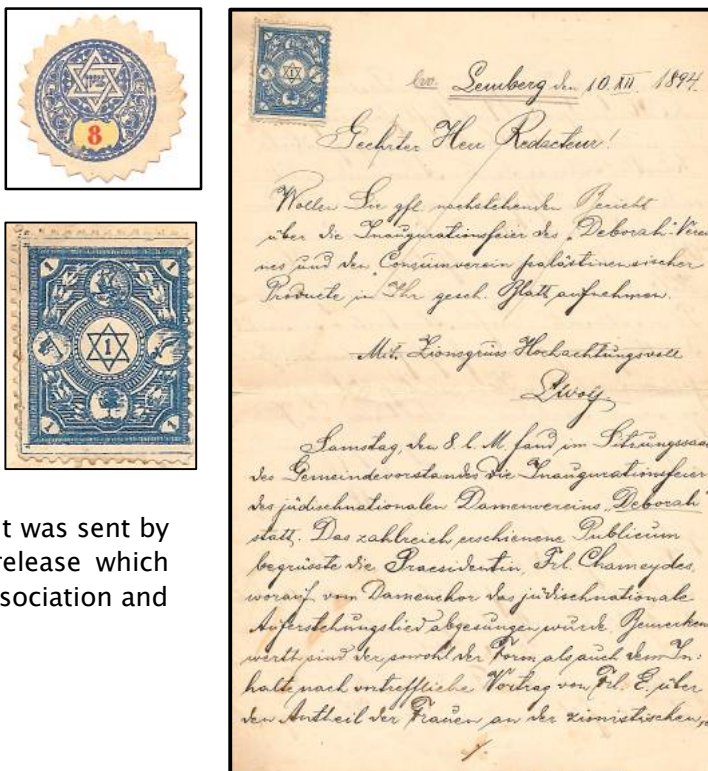 8
1 1
1
1 1
t was sent by
release which
ssociation and
1
Lemberg den 10. XII. 1894.
Geehrter Herr Redacteur!
Wollen Sie gfl. nachstehenden Bericht
über die Inaugurationsfeier des „Deborah"-Verei
nes und den Consumverein palästinensischer
Producte in Ihr gesch. Blatt aufnehmen.
Mit Zionsgruss Hochachtungsvoll
Samstag, den 8. l. M. fand im Sitzungssaal
des Gemeindevorstandes die Inaugurationsfeier
des jüdischnationalen Damenvereins „Deborah"
statt. Das zahlreich erschienene Publicum
begrüsste die Praesidentin, Frl. Chameydes,
worauf vom Damenchor das jüdischnationale
Auferstehungslied abgesungen wurde. Bemerkens
werth sind der, sowohl der Form als auch dem In-
halte nach vortreffliche Vortrag von Frl. E. über
den Antheil der Frauen an der zionistischen